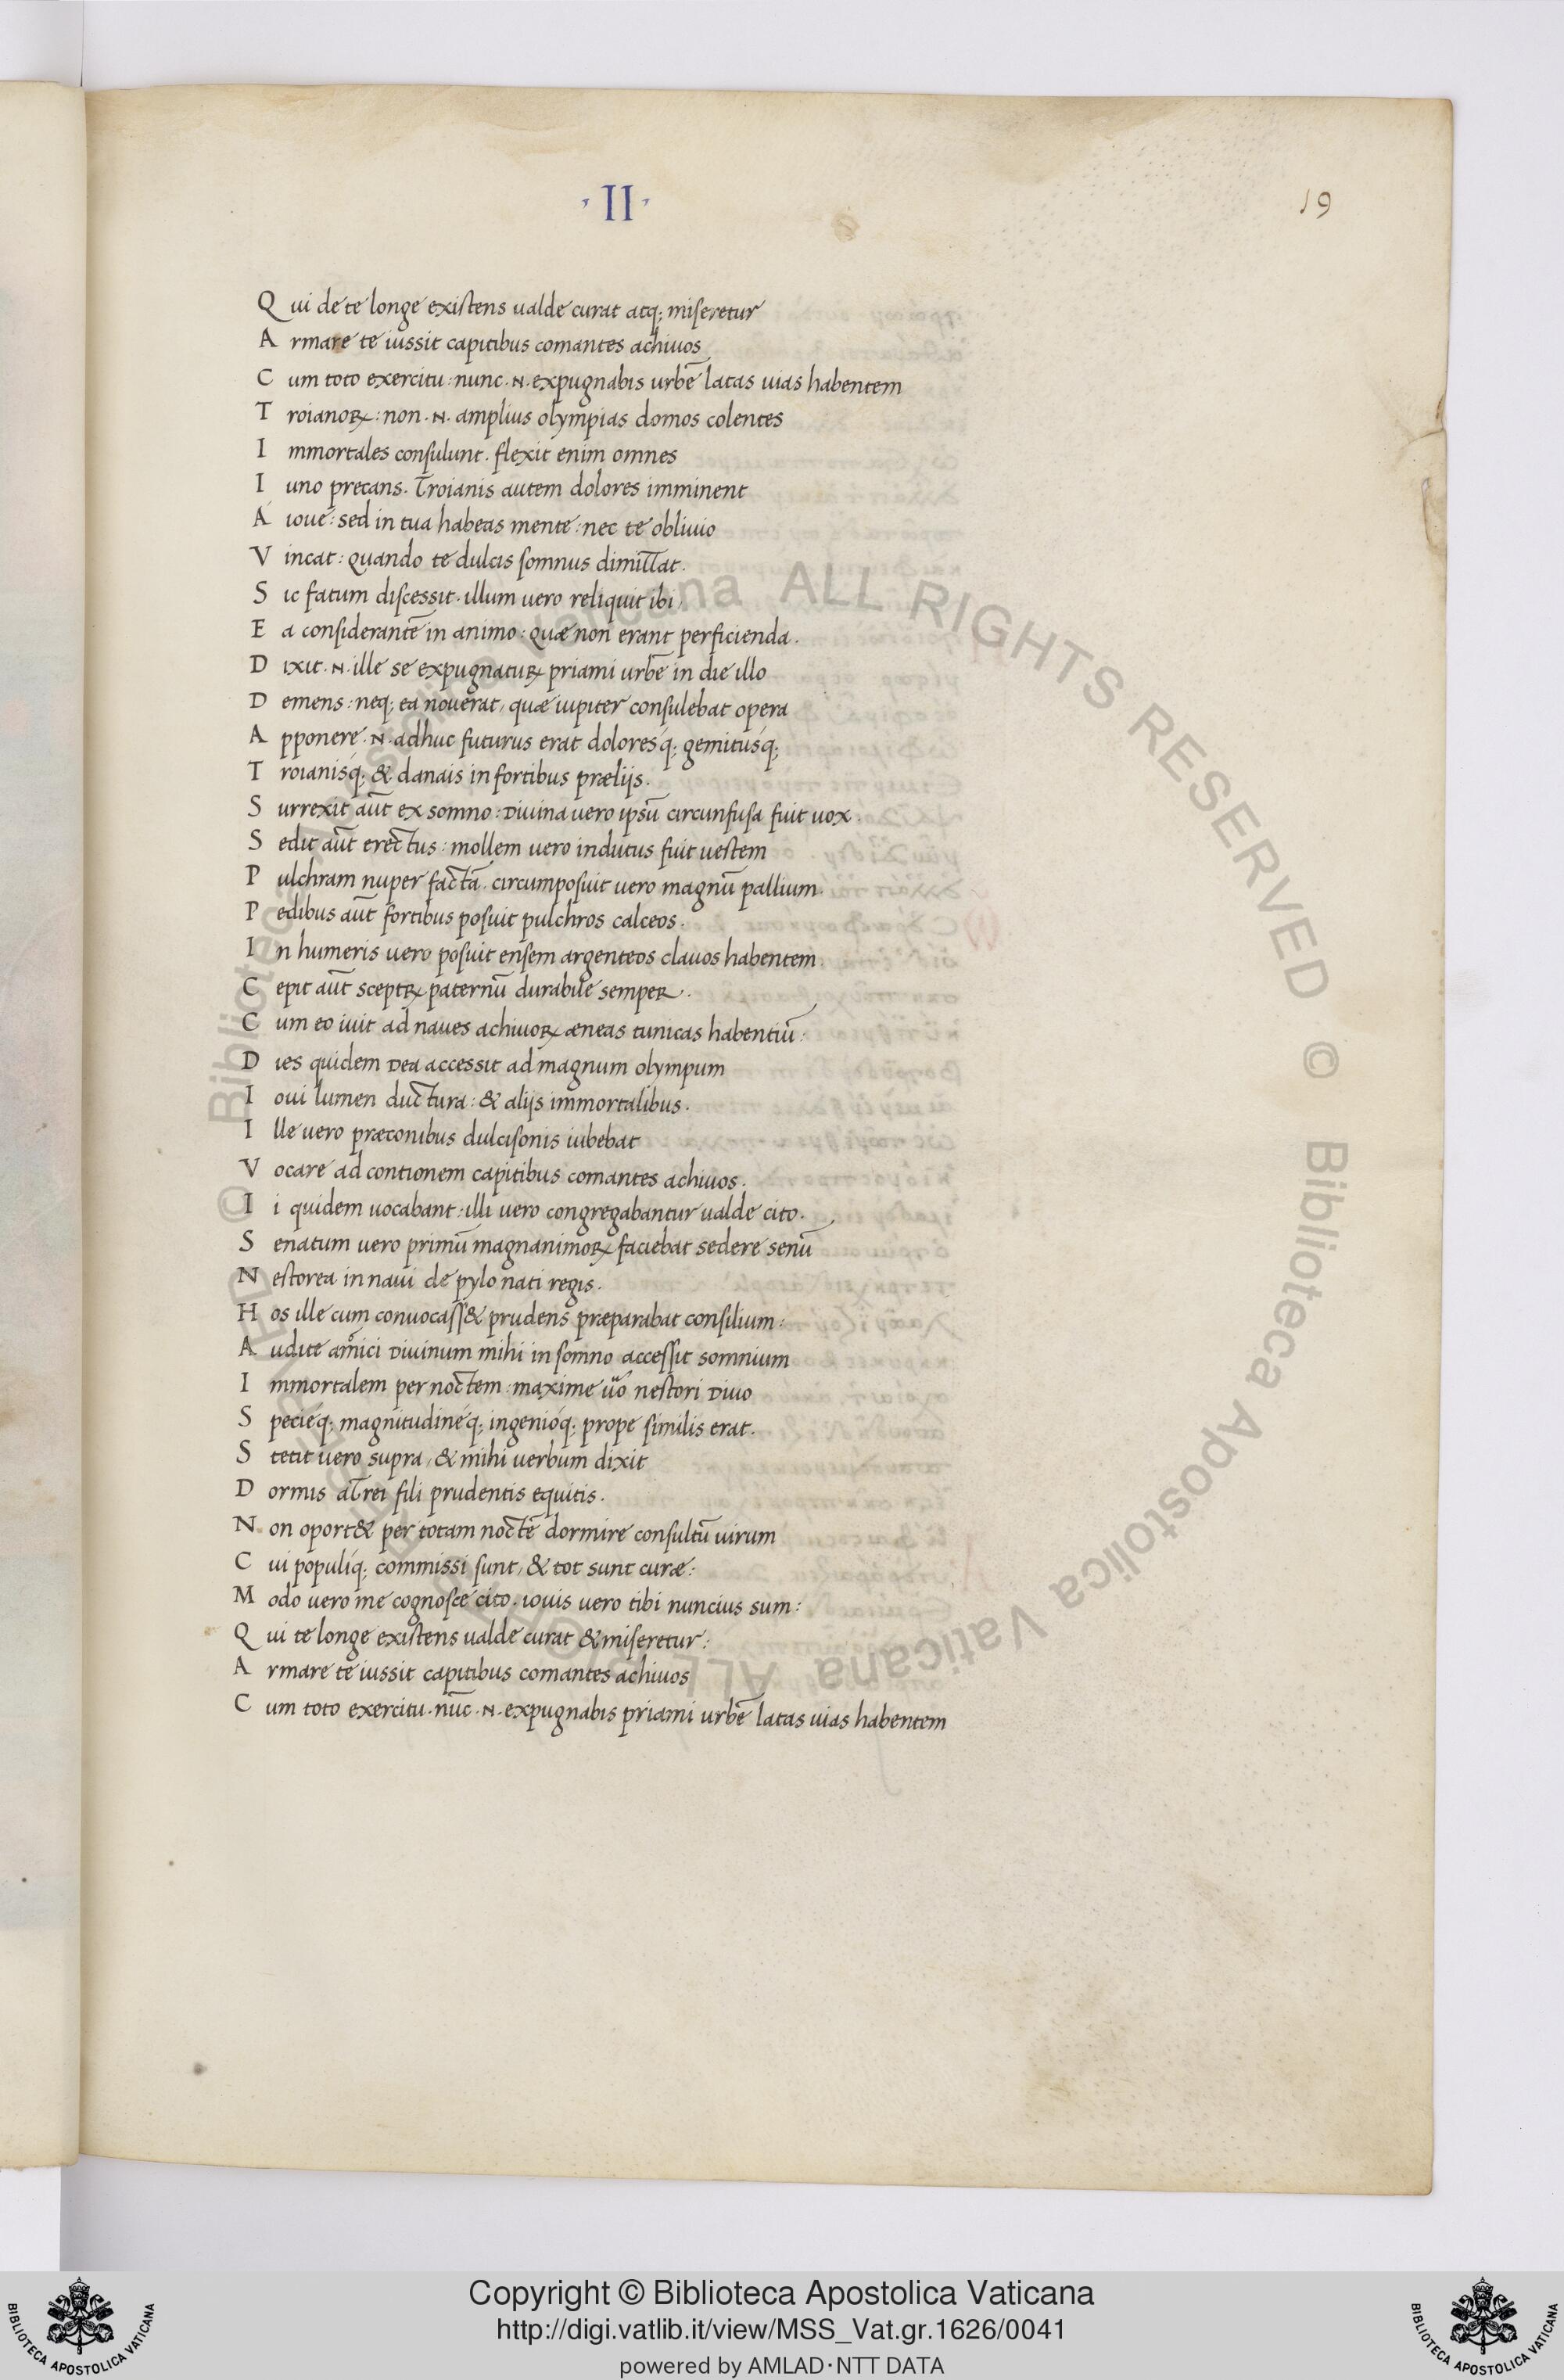 · II ·
19
Qui de te longe existens ualde curat atq; miseretur
Armare te iussit capitibus comantes achiuos
Cum toto exercitu: nunc .N. expugnabis urbē latas uias habentem
Troianoꝝ: non .N. amplius olympias domos colentes
Immortales consulunt. flexit enim omnes
Iuno precans. Troianis autem dolores imminent
A ioue: sed in tua habeas mente: nec te obliuio
Vincat: quando te dulcis somnus dimittat.
Sic fatum discessit. illum uero reliquit ibi,
Ea considerantē in animo: quæ non erant perficienda.
Dixit .N. ille se expugnatuꝝ priami urbē in die illo
Demens: neq; ea nouerat, quæ iupiter consulebat opera
Apponere .N. adhuc futurus erat doloresq́; gemitusq́;
Troianisq́; & danais in fortibus prælijs.
Surrexit aūt ex somno: diuina uero ipsū circunfusa fuit uox.
Sedit aūt erectus: mollem uero indutus fuit uestem
Pulchram nuper factā. circumposuit uero magnū pallium.
Pedibus aūt fortibus posuit pulchros calceos.
In humeris uero posuit ensem argenteos clauos habentem.
Cepit aūt sceptꝝ paternū durabile semper.
Cum eo iuit ad naues achiuoꝝ æneas tunicas habentiū:
Dies quidem dea accessit ad magnum olympum
Ioui lumen ductura: & alijs immortalibus.
Ille uero præconibus dulcisonis iubebat
Vocare ad contionem capitibus comantes achiuos.
Ii quidem uocabant: illi uero congregabantur ualde cito.
Senatum uero primū magnanimoꝝ faciebat sedere senū
Nestorea in naui de pylo nati regis.
Hos ille cum conuocass& prudens præparabat consilium:
Audite amici diuinum mihi in somno accessit somnium
Immortalem per noctem: maxime uº nestori diuo
Specieq́; magnitudineq́; ingenioq́; prope similis erat.
Stetit uero supra, & mihi uerbum dixit
Dormis atrei fili prudentis equitis.
Non oport& per totam noctē dormire consultū uirum
Cui populiq́; commissi sunt, & tot sunt curæ:
Modo uero me cognosce cito. iouis uero tibi nuncius sum:
Qui te longe existens ualde curat & miseretur:
Armare te iussit capitibus comantes achiuos
Cum toto exercitu. nūc .N. expugnabis priami urbē latas uias habentem
© Biblioteca Apostolica Vaticana ALL RIGHTS RESERVED © Biblioteca Apostolica Vaticana ALL RIGHTS RESERVED
Copyright © Biblioteca Apostolica Vaticana
http://digi.vatlib.it/view/MSS_Vat.gr.1626/0041
powered by AMLAD·NTT DATA
BIBLIOTECA APOSTOLICA VATICANA
BIBLIOTECA APOSTOLICA VATICANA